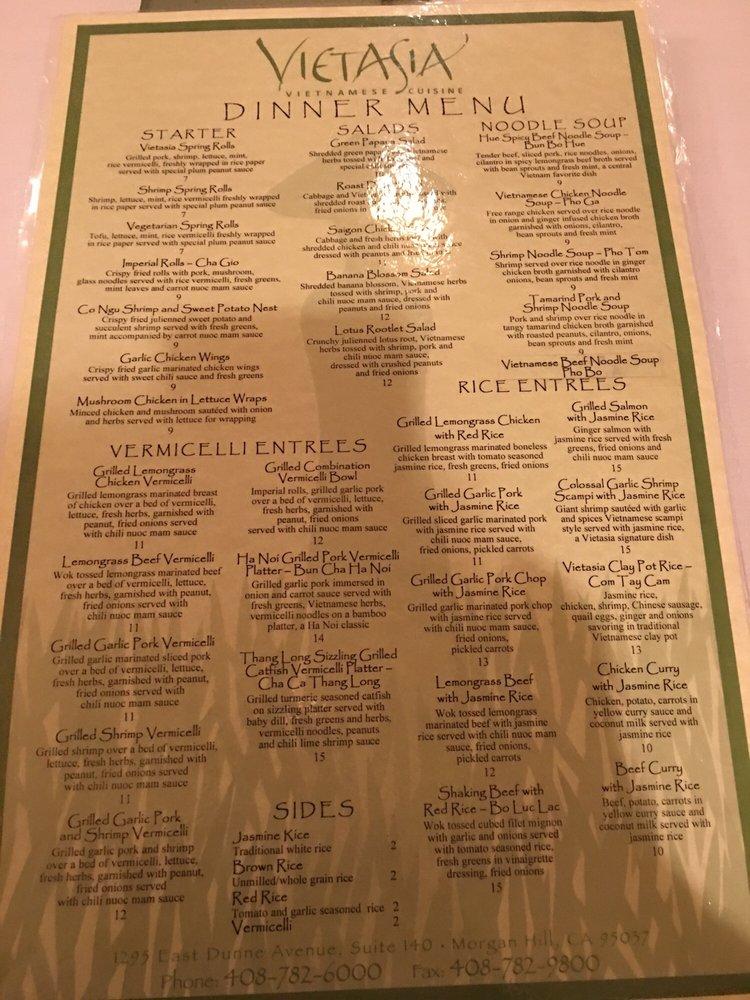 VIETASIA
VIETNAMESE CUISINE
DINNER MENU
STARTER
Vietasia Spring Rolls
Grilled pork, shrimp, lettuce, mint,
rice vermicelli, freshly wrapped in rice paper
served with special plum peanut sauce
7
Shrimp Spring Rolls
Shrimp, lettuce, mint, rice vermicelli freshly wrapped
in rice paper served with special plum peanut sauce
7
Vegetarian Spring Rolls
Tofu, lettuce, mint, rice vermicelli freshly wrapped
in rice paper served with special plum peanut sauce
7
Imperial Rolls – Cha Gio
Crispy fried rolls with pork, mushroom,
glass noodles served with rice vermicelli, fresh greens,
mint leaves and carrot nuoc mam sauce
9
Co Ngu Shrimp and Sweet Potato Nest
Crispy fried julienned sweet potato and
succulent shrimp served with fresh greens,
mint accompanied by carrot nuoc mam sauce
9
Garlic Chicken Wings
Crispy fried garlic marinated chicken wings
served with sweet chili sauce and fresh greens
9
Mushroom Chicken in Lettuce Wraps
Minced chicken and mushroom sautéed with onion
and herbs served with lettuce for wrapping
9
SALADS
Green Papaya Salad
Shredded green Vietnamese
herbs tossed and
special
Roast
Cabbage and with
shredded roast
fried onions in
Saigon Chicken
Cabbage and fresh herbs
shredded chicken and chili sauce
dressed with peanuts and
Banana Blossom Salad
Shredded banana blossom, Vietnamese herbs
tossed with shrimp, pork and
chili nuoc mam sauce, dressed with
peanuts and fried onions
12
Lotus Rootlet Salad
Crunchy julienned lotus root, Vietnamese
herbs tossed with shrimp, pork and
chili nuoc mam sauce,
dressed with crushed peanuts
and fried onions
12
NOODLE SOUP
Hue Spicy Beef Noodle Soup –
Bun Bo Hue
Tender beef, sliced pork, rice noodles, onions,
cilantro in spicy lemongrass beef broth served
with bean sprouts and fresh mint, a central
Vietnam favorite dish
9
Vietnamese Chicken Noodle
Soup – Pho Ga
Free range chicken served over rice noodle
in onion and ginger infused chicken broth
garnished with onions, cilantro,
bean sprouts and fresh mint
9
Shrimp Noodle Soup – Pho Tom
Shrimp served over rice noodle in ginger
chicken broth garnished with cilantro
onions, bean sprouts and fresh mint
9
Tamarind Pork and
Shrimp Noodle Soup
Pork and shrimp over rice noodle in
tangy tamarind chicken broth garnished
with roasted peanuts, cilantro, onions,
bean sprouts and fresh mint
9
Vietnamese Beef Noodle Soup
Pho Bo
VERMICELLI ENTREES
Grilled Lemongrass
Chicken Vermicelli
Grilled lemongrass marinated breast
of chicken over a bed of vermicelli,
lettuce, fresh herbs, garnished with
peanut, fried onions served
with chili nuoc mam sauce
11
Lemongrass Beef Vermicelli
Wok tossed lemongrass marinated beef
over a bed of vermicelli, lettuce,
fresh herbs, garnished with peanut,
fried onions served with
chili nuoc mam sauce
11
Grilled Garlic Pork Vermicelli
Grilled garlic marinated sliced pork
over a bed of vermicelli, lettuce,
fresh herbs, garnished with peanut,
fried onions served with
chili nuoc mam sauce
11
Grilled Shrimp Vermicelli
Grilled shrimp over a bed of vermicelli,
lettuce, fresh herbs, garnished with
peanut, fried onions served
with chili nuoc mam sauce
11
Grilled Garlic Pork
and Shrimp Vermicelli
Grilled garlic pork and shrimp
over a bed of vermicelli, lettuce,
fresh herbs, garnished with peanut,
fried onions served
with chili nuoc mam sauce
12
Grilled Combination
Vermicelli Bowl
Imperial rolls, grilled garlic pork
over a bed of vermicelli, lettuce,
fresh herbs, garnished with
peanut, fried onions
served with chili nuoc mam sauce
12
Ha Noi Grilled Pork Vermicelli
Platter – Bun Cha Ha Noi
Grilled garlic pork immersed in
onion and carrot sauce served with
fresh greens, Vietnamese herbs,
vermicelli noodles on a bamboo
platter, a Ha Noi classic
14
Thang Long Sizzling Grilled
Catfish Vermicelli Platter –
Cha Ca Thang Long
Grilled turmeric seasoned catfish
on sizzling platter served with
baby dill, fresh greens and herbs,
vermicelli noodles, peanuts
and chili lime shrimp sauce
15
SIDES
Jasmine Rice 2
Traditional white rice
Brown Rice 2
Unmilled/whole grain rice
Red Rice
Tomato and garlic seasoned rice 2
Vermicelli 2
RICE ENTREES
Grilled Lemongrass Chicken
with Red Rice
Grilled lemongrass marinated boneless
chicken breast with tomato seasoned
jasmine rice, fresh greens, fried onions
11
Grilled Garlic Pork
with Jasmine Rice
Grilled sliced garlic marinated pork
with jasmine rice served with
chili nuoc mam sauce,
fried onions, pickled carrots
11
Grilled Garlic Pork Chop
with Jasmine Rice
Grilled garlic marinated pork chop
with jasmine rice served
with chili nuoc mam sauce,
fried onions,
pickled carrots
13
Lemongrass Beef
with Jasmine Rice
Wok tossed lemongrass
marinated beef with jasmine
rice served with chili nuoc mam
sauce, fried onions,
pickled carrots
12
Shaking Beef with
Red Rice – Bo Luc Lac
Wok tossed cubed filet mignon
with garlic and onions served
with tomato seasoned rice,
fresh greens in vinaigrette
dressing, fried onions
15
Grilled Salmon
with Jasmine Rice
Ginger salmon with
jasmine rice served with fresh
greens, fried onions and
chili nuoc mam sauce
15
Colossal Garlic Shrimp
Scampi with Jasmine Rice
Giant shrimp sautéed with garlic
and spices Vietnamese scampi
style served with jasmine rice,
a Vietasia signature dish
15
Vietasia Clay Pot Rice –
Com Tay Cam
Jasmine rice,
chicken, shrimp, Chinese sausage,
quail eggs, ginger and onions
savoring in traditional
Vietnamese clay pot
13
Chicken Curry
with Jasmine Rice
Chicken, potato, carrots in
yellow curry sauce and
coconut milk served with
jasmine rice
10
Beef Curry
with Jasmine Rice
Beef, potato, carrots in
yellow curry sauce and
coconut milk served with
jasmine rice
10
1295 East Dunne Avenue, Suite 140 • Morgan Hill, CA 95037
Phone: 408-782-6000 Fax: 408-782-9800